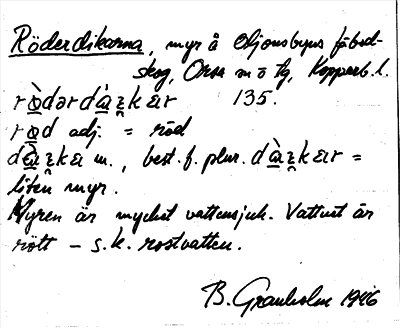 Röderdikarna, myr å Oljonsbyns fäbod-
skog, Orsa sn o tg, Kopparb. l.
rò̱dərdà̱ɀkɛır 135.
rø̱d adj. = röd
dà̱ɀkɛ m., best. f. plur. dà̱ɀkɛır =
liten myr.
Myren är mycket vattensjuk. Vattnet är
rött – s.k. rostvatten.
B. Granholm 1946